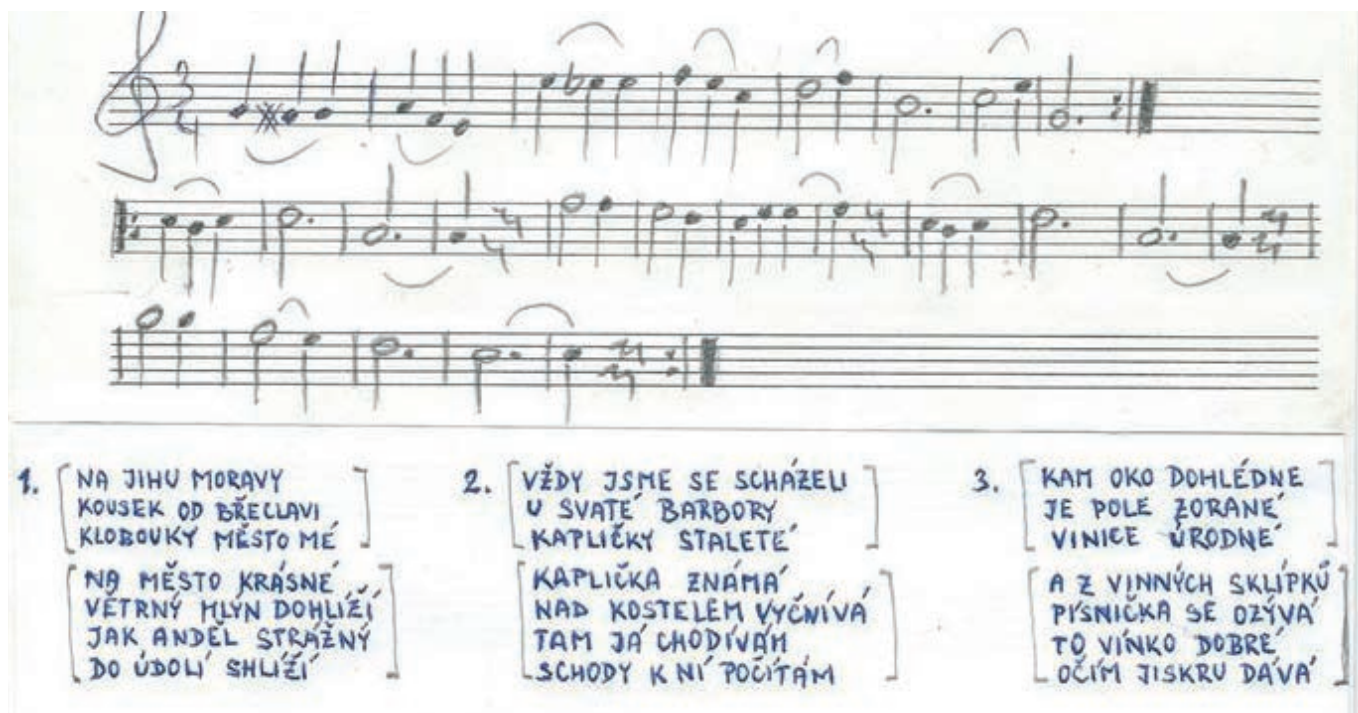 3
4
1. NA JIHU MORAVY
KOUSEK OD BŘECLAVI
KLOBOUKY MĚSTO MÉ
NA MĚSTO KRÁSNÉ
VĚTRNÝ MLÝN DOHLÍŽÍ
JAK ANDĚL STRÁŽNÝ
DO ÚDOLÍ SHLÍŽÍ
2. VŽDY JSME SE SCHÁZELI
U SVATÉ BARBORY
KAPLIČKY STALETÉ
KAPLIČKA ZNÁMÁ
NAD KOSTELEM VYČNÍVÁ
TAM JÁ CHODÍVÁM
SCHODY K NÍ POČÍTÁM
3. KAM OKO DOHLÉDNE
JE POLE ZORANÉ
VINICE ÚRODNÉ
A Z VINNÝCH SKLÍPKŮ
PÍSNIČKA SE OZÝVÁ
TO VÍNKO DOBRÉ
OČÍM JISKRU DÁVÁ